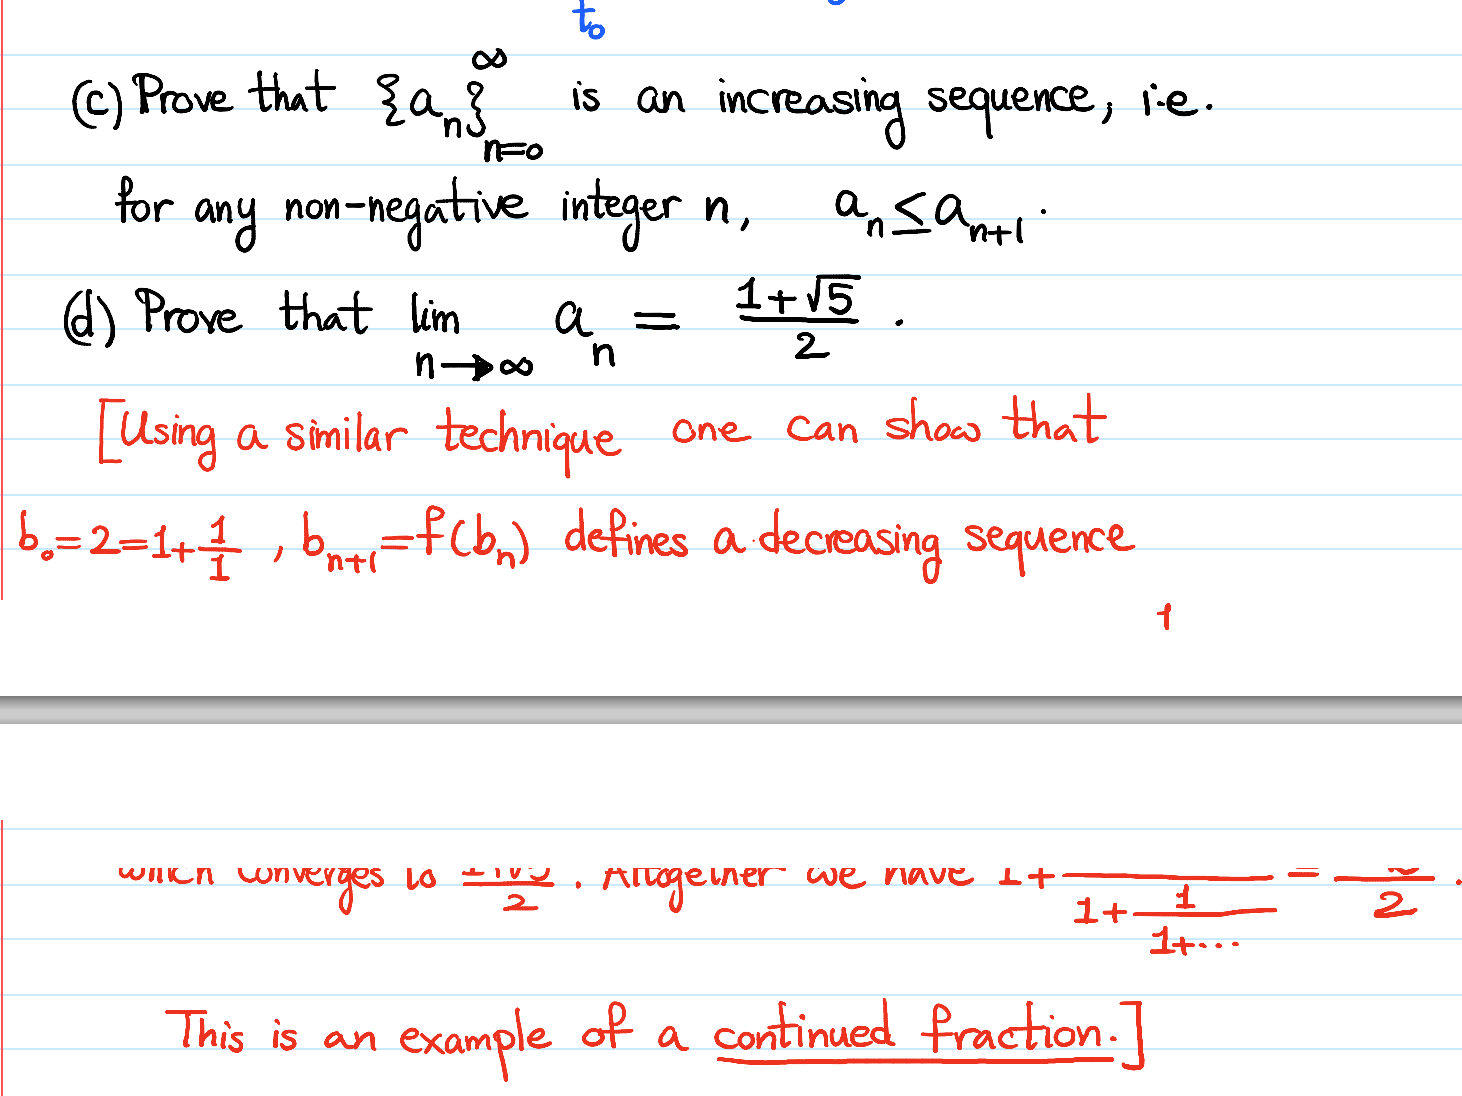 t₀
(c) Prove that {a_n}_{n=0}^∞ is an increasing sequence, i.e.
for any non-negative integer n, a_n ≤ a_{n+1}.
(d) Prove that lim_{n→∞} a_n = (1+√5)/2.
[Using a similar technique one can show that
b₀=2=1+1/1, b_{n+1}=f(b_n) defines a decreasing sequence
1
which converges to (1+√5)/2. Altogether we have 1+ —/(1+1/(1+⋯)) = —/2.
This is an example of a continued fraction.]